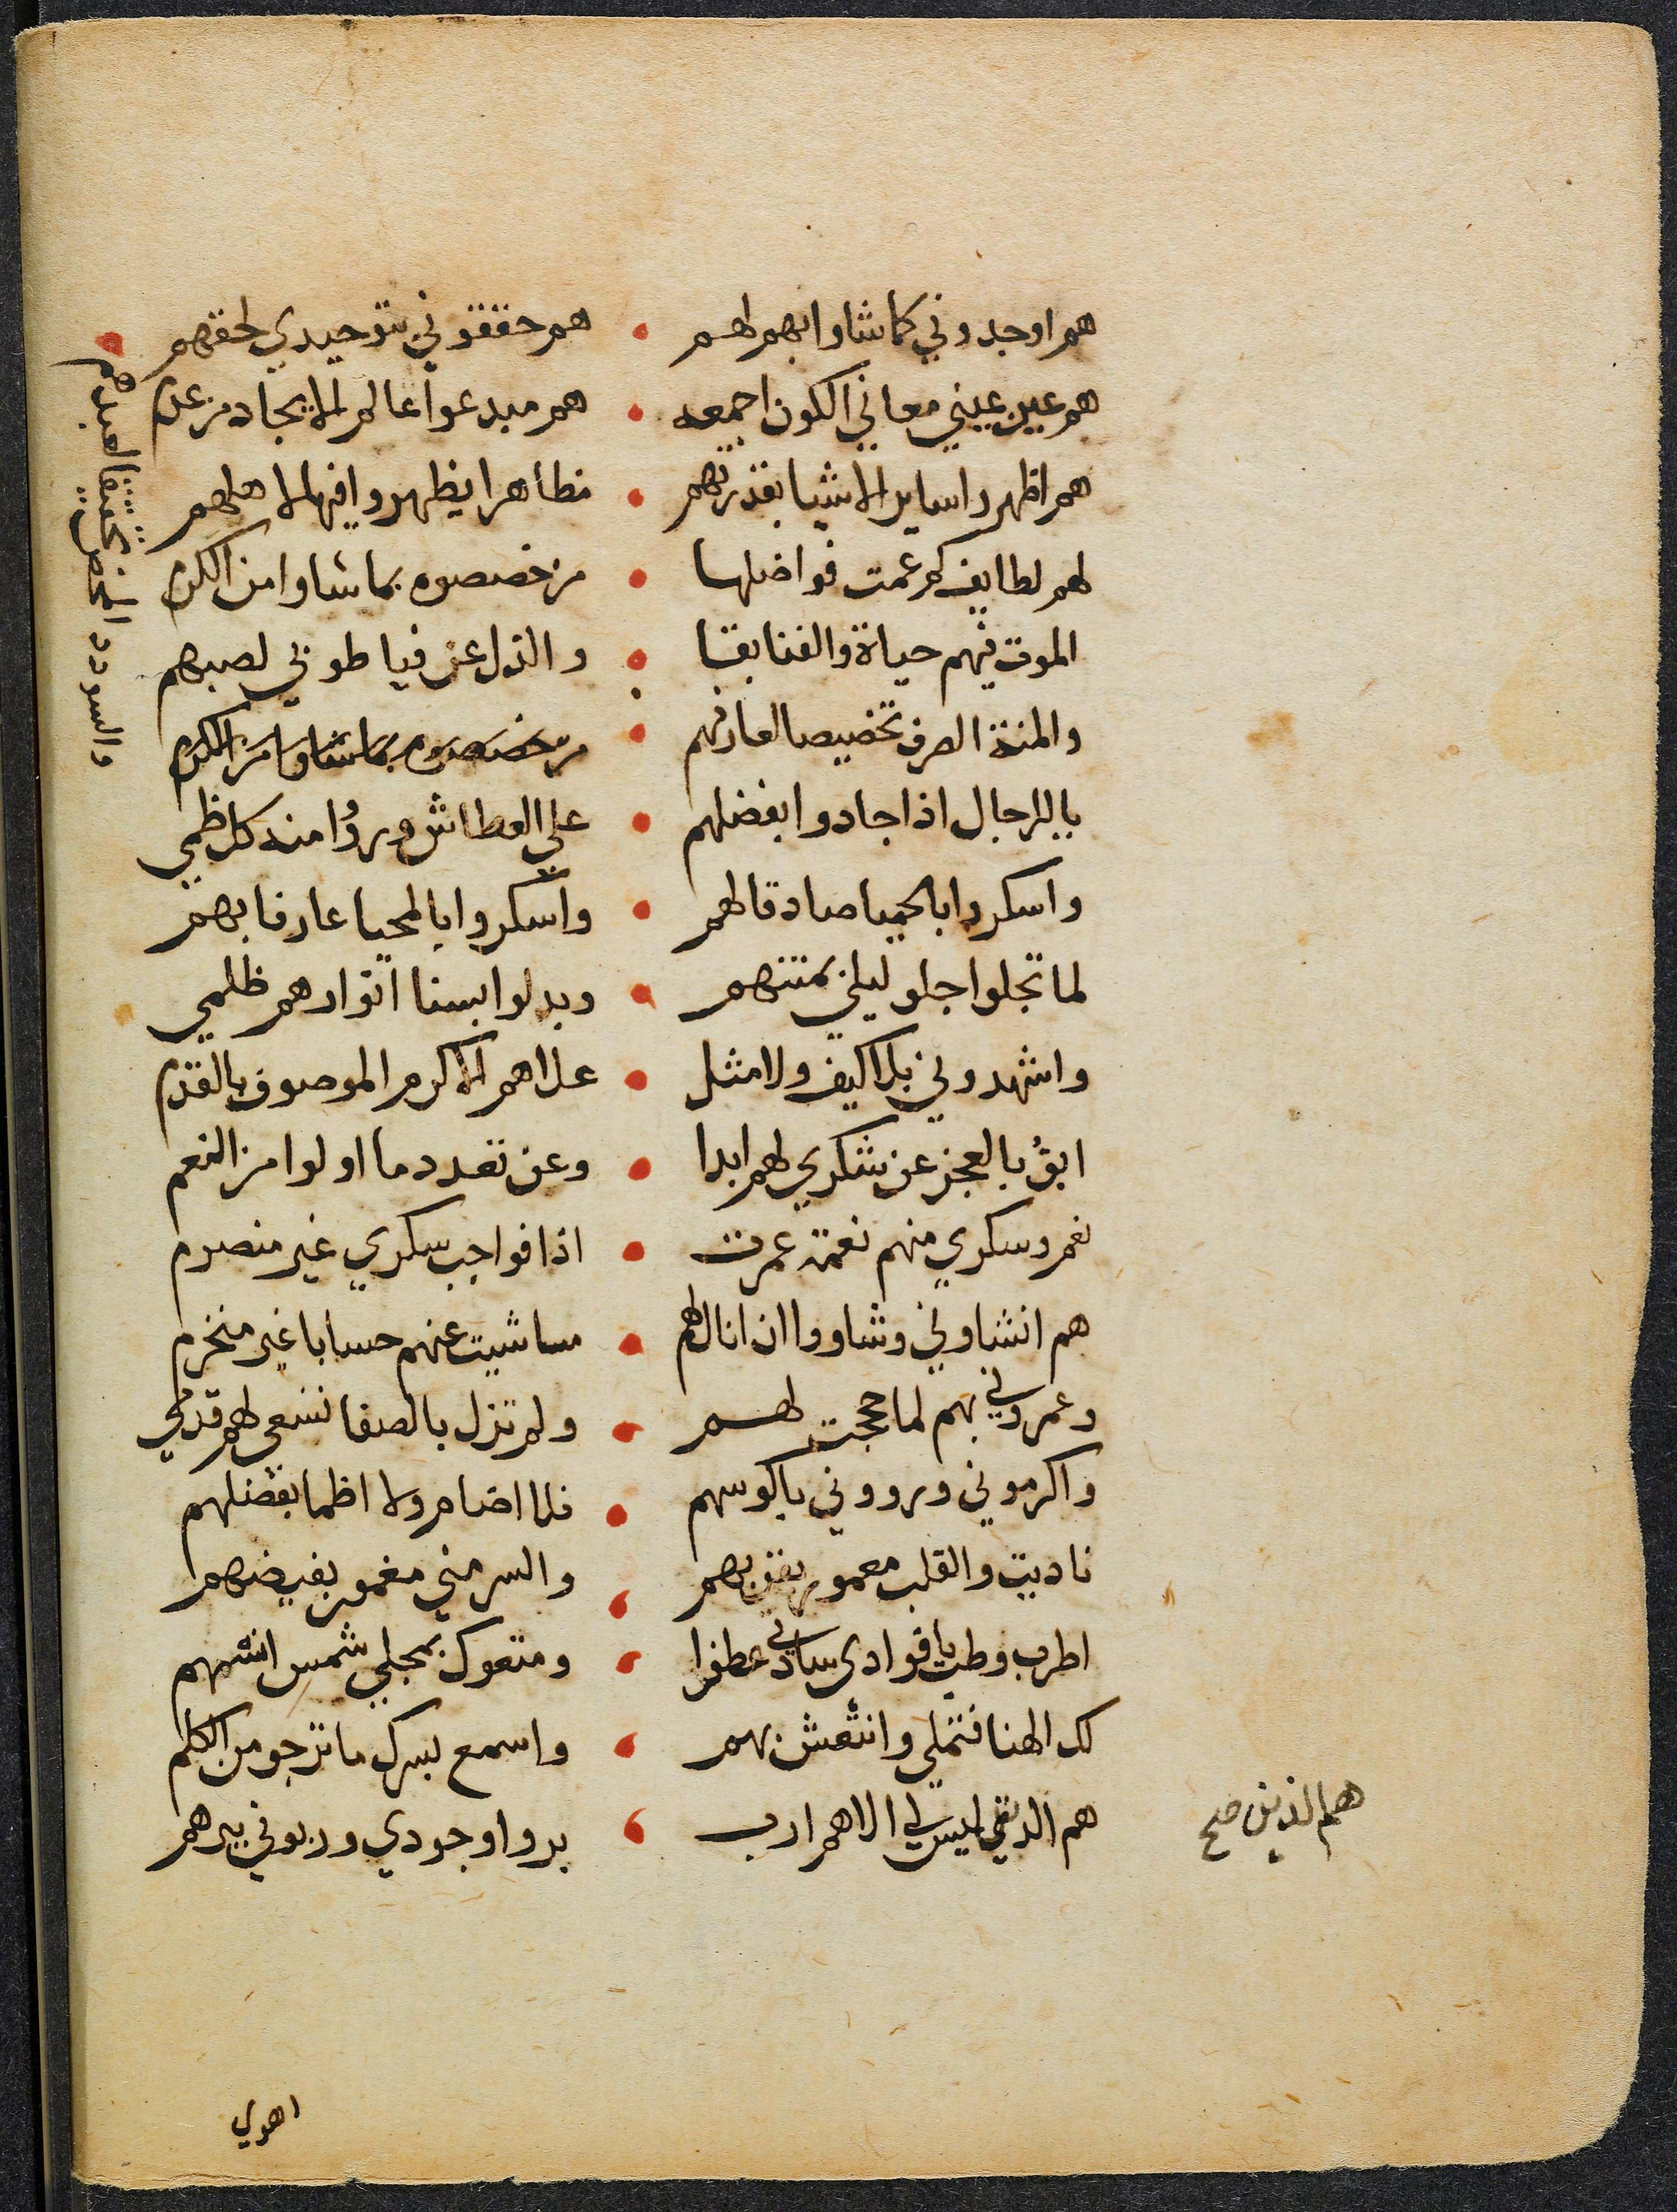 هم اوجدوني كما شاوا بهم لهم • هم حققوني بتوحيدي لحقهم
هم عين عيني معاني الكون اجمعه • هم مبدعوا عالم الايجاد من عدم
هم اظهروا ساير الاشيا بقدرتهم • مظاهرا يظهروا فيها لاهلهم
لهم لطايف كم عمت فواضلها • من خصصوه بما شاوا من الكرم
الموت فيهم حياة والفنا بقا • والذل عز فيا طوبي لصبهم
والمنة الصرف تخصيصا لعارفهم • من خصصوه بما شاوا من الكرم
والسودد المحض تحقيقا لعبدهم
يا للرجال اذا جادوا بفضلهم • علي العطاش وروُا منه كل ظمي
واسكروا بالحميا صادقا لهم • واسكروا بالمحيا عارفا بهم
لما تجلوا جلو ليلي بمنتهم • وبدلوا بسنا انوارهم ظلمي
واشهدوني بلا كيف ولا مثل • علاهم الاكرم الموصوف بالقدم
ابوُ بالعجز عن شكري لهم ابدا • وعن تعدد ما اولوا من النعم
نعم وسكري منهم نعمة عمرت • اذا فواجب سكري غير منصرم
هم انشاوني وشاووا ان انال لهم • مساشيت عنهم حسابا غير منخرم
وعمروني بهم لما حججت لهم • ولم تزل بالصفا تسعي لهم قدمي
واكرموني ورووني باكوسهم • فلا اضام ولا اظما بفضلهم
ناديت والقلب معمور بقربهم • والسر مني مغمور بفيضهم
اطرب وطب يا فوادي ساداتي عطفوا • ومتعوك بمجلي شمس انسهم
لك الهنا فتملي وانتعش بهم • واسمع بسرك ما ترجو من الكلم
هم الذي ليس لي الاهم ارب • بروا وجودي وربوني ببرهم
هم الذين صح
اهوي